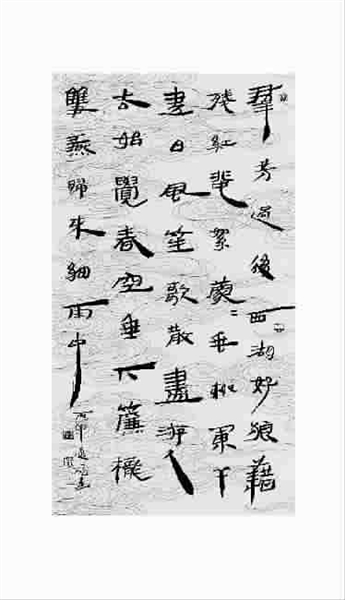 羣芳過後西湖好狼藉
殘紅飛絮濛〻垂柳闌干
盡日風笙歌散盡游人
去始覺春空垂下簾櫳
雙燕歸來細雨中
丙申